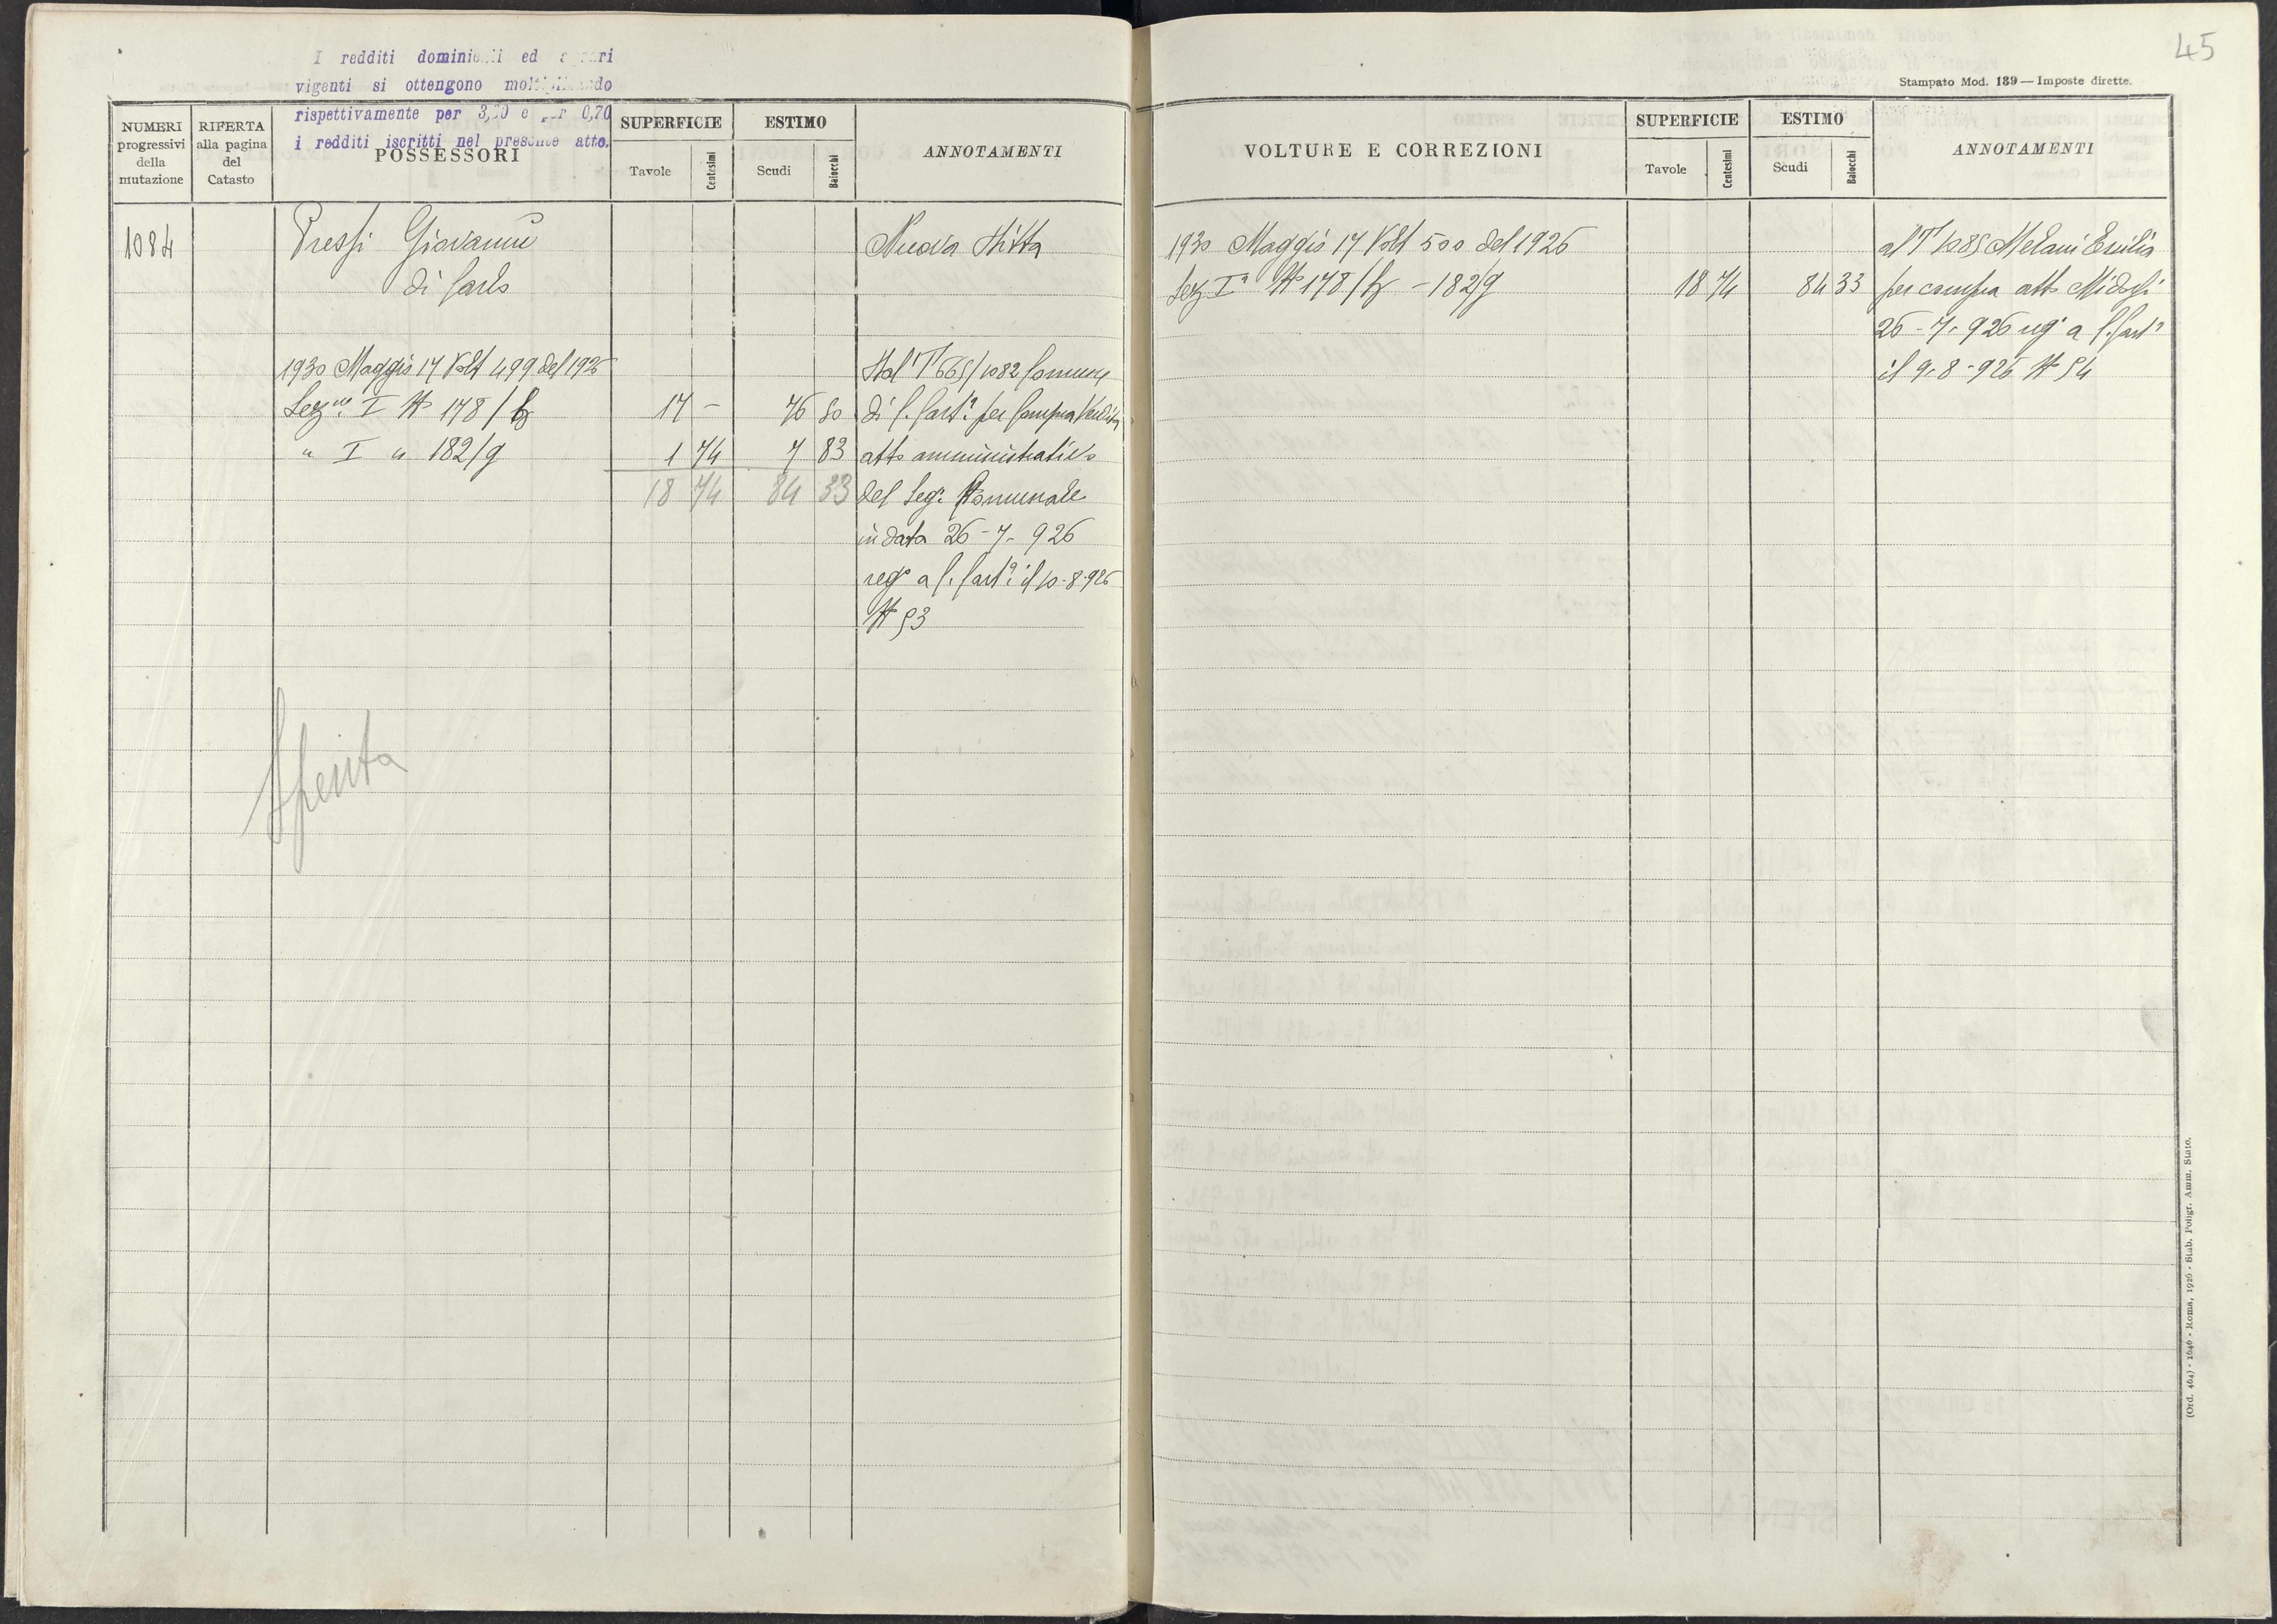 45
I redditi dominicali ed agrari
vigenti si ottengono moltiplicando
rispettivamente per 3,30 e per 0,70
i redditi iscritti nel presente atto.
NUMERI progressivi della mutazione
RIFERTA alla pagina del Catasto
POSSESSORI
SUPERFICIE
Tavole
Centesimi
ESTIMO
Scudi
Baiocchi
ANNOTAMENTI
1084
Pressi Giovanni
di Carlo
Nuova Ditta
1930 Maggio 17 Volt 499 del 1926
Sez.ne I N 178/b 17 - 76 50
" I " 182/g 1 74 7 83
18 74 84 33
Dal T 665/1082 Comune
di C. Cast.o per Compra Vendita
atto amministrativo
del Seg. Comunale
in data 26-7-926
reg.o a C. Cast.o il 10-8-926
N 53
Spenta
Stampato Mod. 139 — Imposte dirette.
VOLTURE E CORREZIONI
SUPERFICIE
Tavole
Centesimi
ESTIMO
Scudi
Baiocchi
ANNOTAMENTI
1930 Maggio 17 Volt 500 del 1926
Sez I N 178/b - 182/g 18 74 84 33
al T 1085 Melani Emilia
per compra atto
26-7-926 reg a C. Cast.o
il 9-8-926 N 54
(Ord. 464) - 1646 - Roma, 1926 - Stab. Poligr. Amm. Stato.